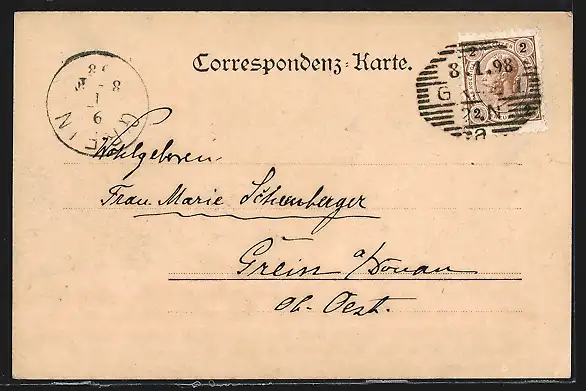 Correspondenz-Karte.
2 2
8. 1. 98
2 2
Wohlgeboren
Frau Marie Schenberger
Grein a/Donau
Ob. Oest.